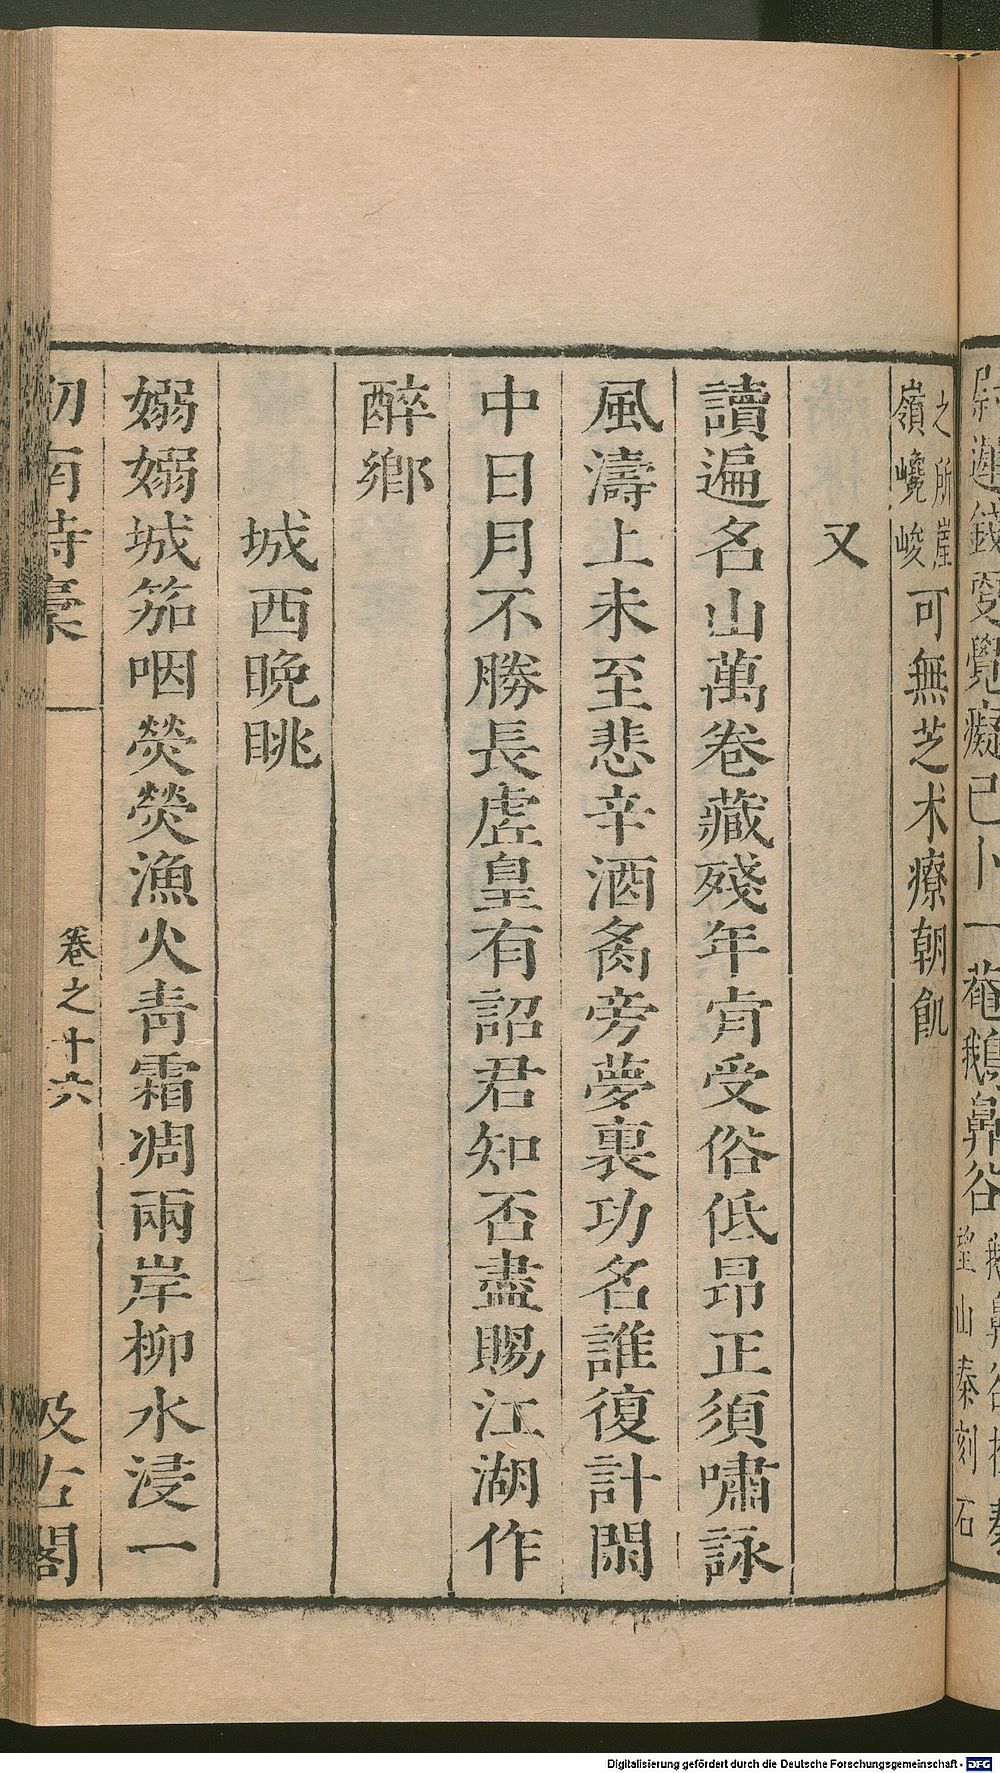 更覺癡已卜一菴鵝鼻谷
望山秦刻石
之所崖
嶺巉峻
可無芝术療朝飢
又
讀遍名山萬卷藏殘年肯受俗低昂正須嘯詠
風濤上未至悲辛酒肉旁夢裏功名誰復計閒
中日月不勝長虛皇有詔君知否盡賜江湖作
醉鄉
城西晚眺
嫋嫋城笳咽熒熒漁火青霜凋兩岸柳水浸一
劍南詩稾
卷之十六
汲古閣
Digitalisierung gefördert durch die Deutsche Forschungsgemeinschaft - DFG